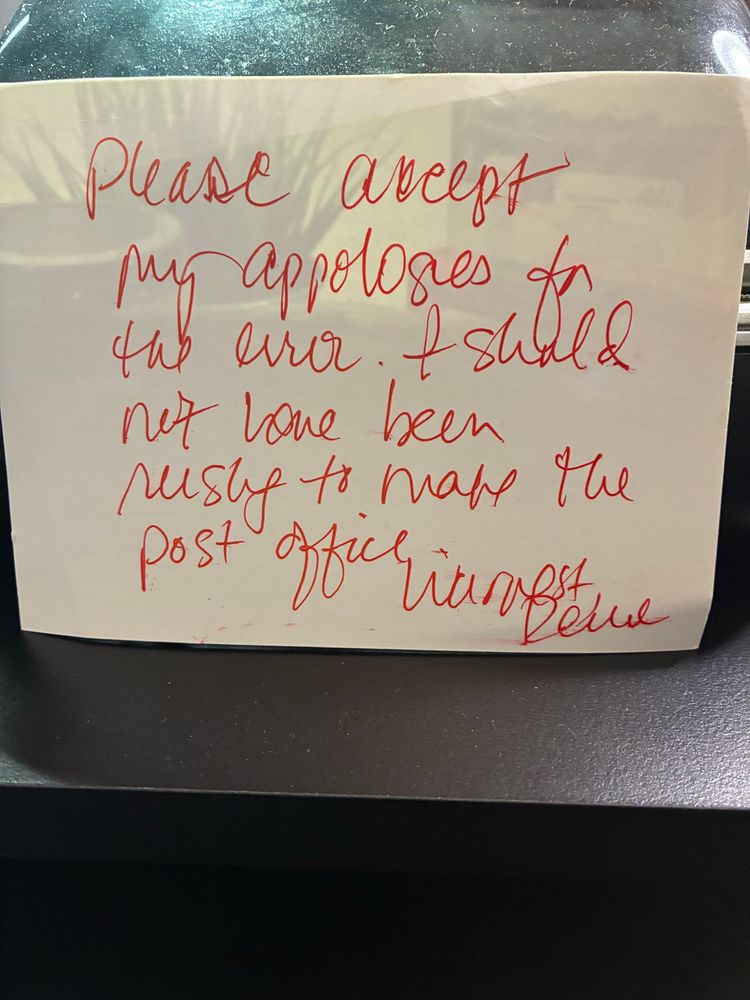 Please accept
my appologies for
the error. I should
not have been
rushg to make the
post office